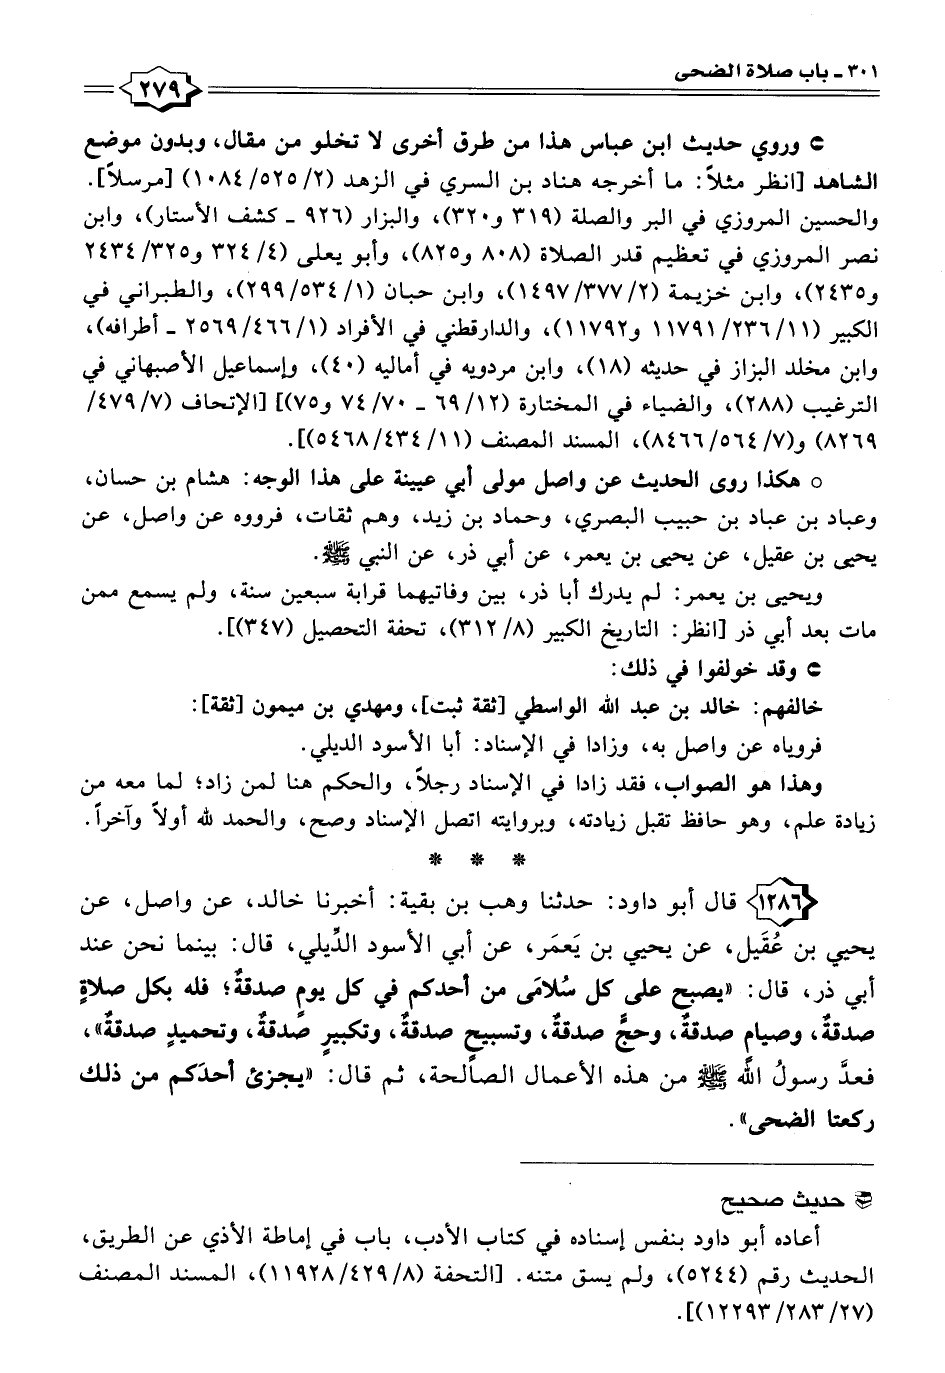 ٣٠١ - باب صلاة الضحى
٢٧٩
وروي حديث ابن عباس هذا من طرق أخرى لا تخلو من مقال، وبدون موضع
الشاهد [انظر مثلاً: ما أخرجه هناد بن السري في الزهد (١٠٨٤/٥٢٥/٢) [مرسلاً].
والحسين المروزي في البر والصلة (٣١٩ و٣٢٠)، والبزار (٩٢٦ - كشف الأستار)، وابن
نصر المروزي في تعظيم قدر الصلاة (٨٠٨ و٨٢٥)، وأبو يعلى (٤/ ٣٢٤ و٢٤٣٤/٣٢٥
و٢٤٣٥)، وابن خزيمة (١٤٩٧/٣٧٧/٢)، وابن حبان (٢٩٩/٥٣٤/١)، والطبراني في
الكبير (١١٧٩١/٢٣٦/١١ و١١٧٩٢)، والدارقطني في الأفراد (٢٥٦٩/٤٦٦/١ - أطرافه)،
وابن مخلد البزاز في حديثه (١٨)، وابن مردويه في أماليه (٤٠)، وإسماعيل الأصبهاني في
الترغيب (٢٨٨)، والضياء في المختارة (٦٩/١٢ - ٧٤/٧٠ و٧٥)] [الإتحاف (٤٧٩/٧/
٨٢٦٩) و(٨٤٦٦/٥٦٤/٧)، المسند المصنف (٥٤٦٨/٤٣٤/١١)].
○ هكذا روى الحديث عن واصل مولى أبي عيينة على هذا الوجه: هشام بن حسان،
وعباد بن عباد بن حبيب البصري، وحماد بن زيد، وهم ثقات، فرووه عن واصل، عن
يحيى بن عقيل، عن يحيى بن يعمر، عن أبي ذر، عن النبي ﷺ.
ويحيى بن يعمر: لم يدرك أبا ذر، بين وفاتيهما قرابة سبعين سنة، ولم يسمع ممن
مات بعد أبي ذر [انظر: التاريخ الكبير (٣١٢/٨)، تحفة التحصيل (٣٤٧)].
وقد خولفوا في ذلك:
خالفهم: خالد بن عبد الله الواسطي [ثقة ثبت]، ومهدي بن ميمون [ثقة]:
فروياه عن واصل به، وزادا في الإسناد: أبا الأسود الديلي.
وهذا هو الصواب، فقد زادا في الإسناد رجلاً، والحكم هنا لمن زاد؛ لما معه من
زيادة علم، وهو حافظ تقبل زيادته، وبروايته اتصل الإسناد وصح، والحمد لله أولاً وآخراً.
* * *
١٢٨٦ قال أبو داود: حدثنا وهب بن بقية: أخبرنا خالد، عن واصل، عن
يحيي بن عُقَيل، عن يحيي بن يَعمَر، عن أبي الأسود الدِّيلي، قال: بينما نحن عند
أبي ذر، قال: «يصبح على كل سُلامَى من أحدكم في كل يومٍ صدقةٌ؛ فله بكل صلاةٍ
صدقةٌ، وصيامٍ صدقةٌ، وحجٍّ صدقةٌ، وتسبيحٍ صدقةٌ، وتكبيرٍ صدقةٌ، وتحميدٍ صدقةٌ»،
فعدَّ رسولُ الله ﷺ من هذه الأعمال الصالحة، ثم قال: «يجزئ أحدَكم من ذلك
ركعتا الضحى».
حديث صحيح
أعاده أبو داود بنفس إسناده في كتاب الأدب، باب في إماطة الأذي عن الطريق،
الحديث رقم (٥٢٤٤)، ولم يسق متنه. [التحفة (١١٩٢٨/٤٢٩/٨)، المسند المصنف
(١٢٢٩٣/٢٨٣/٢٧)].